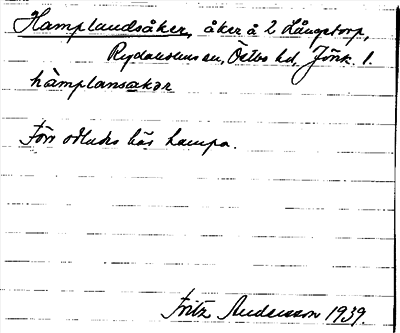 Hamplandsåker, åker å 2 Långstorp,
Rydaholms sn, Östbo hd, Jönk. l.
hàmplansakər
Förr odlades här hampa.
Fritz Andersson 1939.